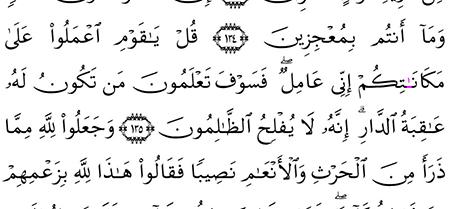 وَمَآ أَنتُم بِمُعْجِزِينَ ۝١٣٤ قُلْ يَـٰقَوْمِ ٱعْمَلُوا۟ عَلَىٰ
مَكَانَتِكُمْ إِنِّى عَامِلٌۭ ۖ فَسَوْفَ تَعْلَمُونَ مَن تَكُونُ لَهُۥ
عَـٰقِبَةُ ٱلدَّارِ ۗ إِنَّهُۥ لَا يُفْلِحُ ٱلظَّـٰلِمُونَ ۝١٣٥ وَجَعَلُوا۟ لِلَّهِ مِمَّا
ذَرَأَ مِنَ ٱلْحَرْثِ وَٱلْأَنْعَـٰمِ نَصِيبًۭا فَقَالُوا۟ هَـٰذَا لِلَّهِ بِزَعْمِهِمْ